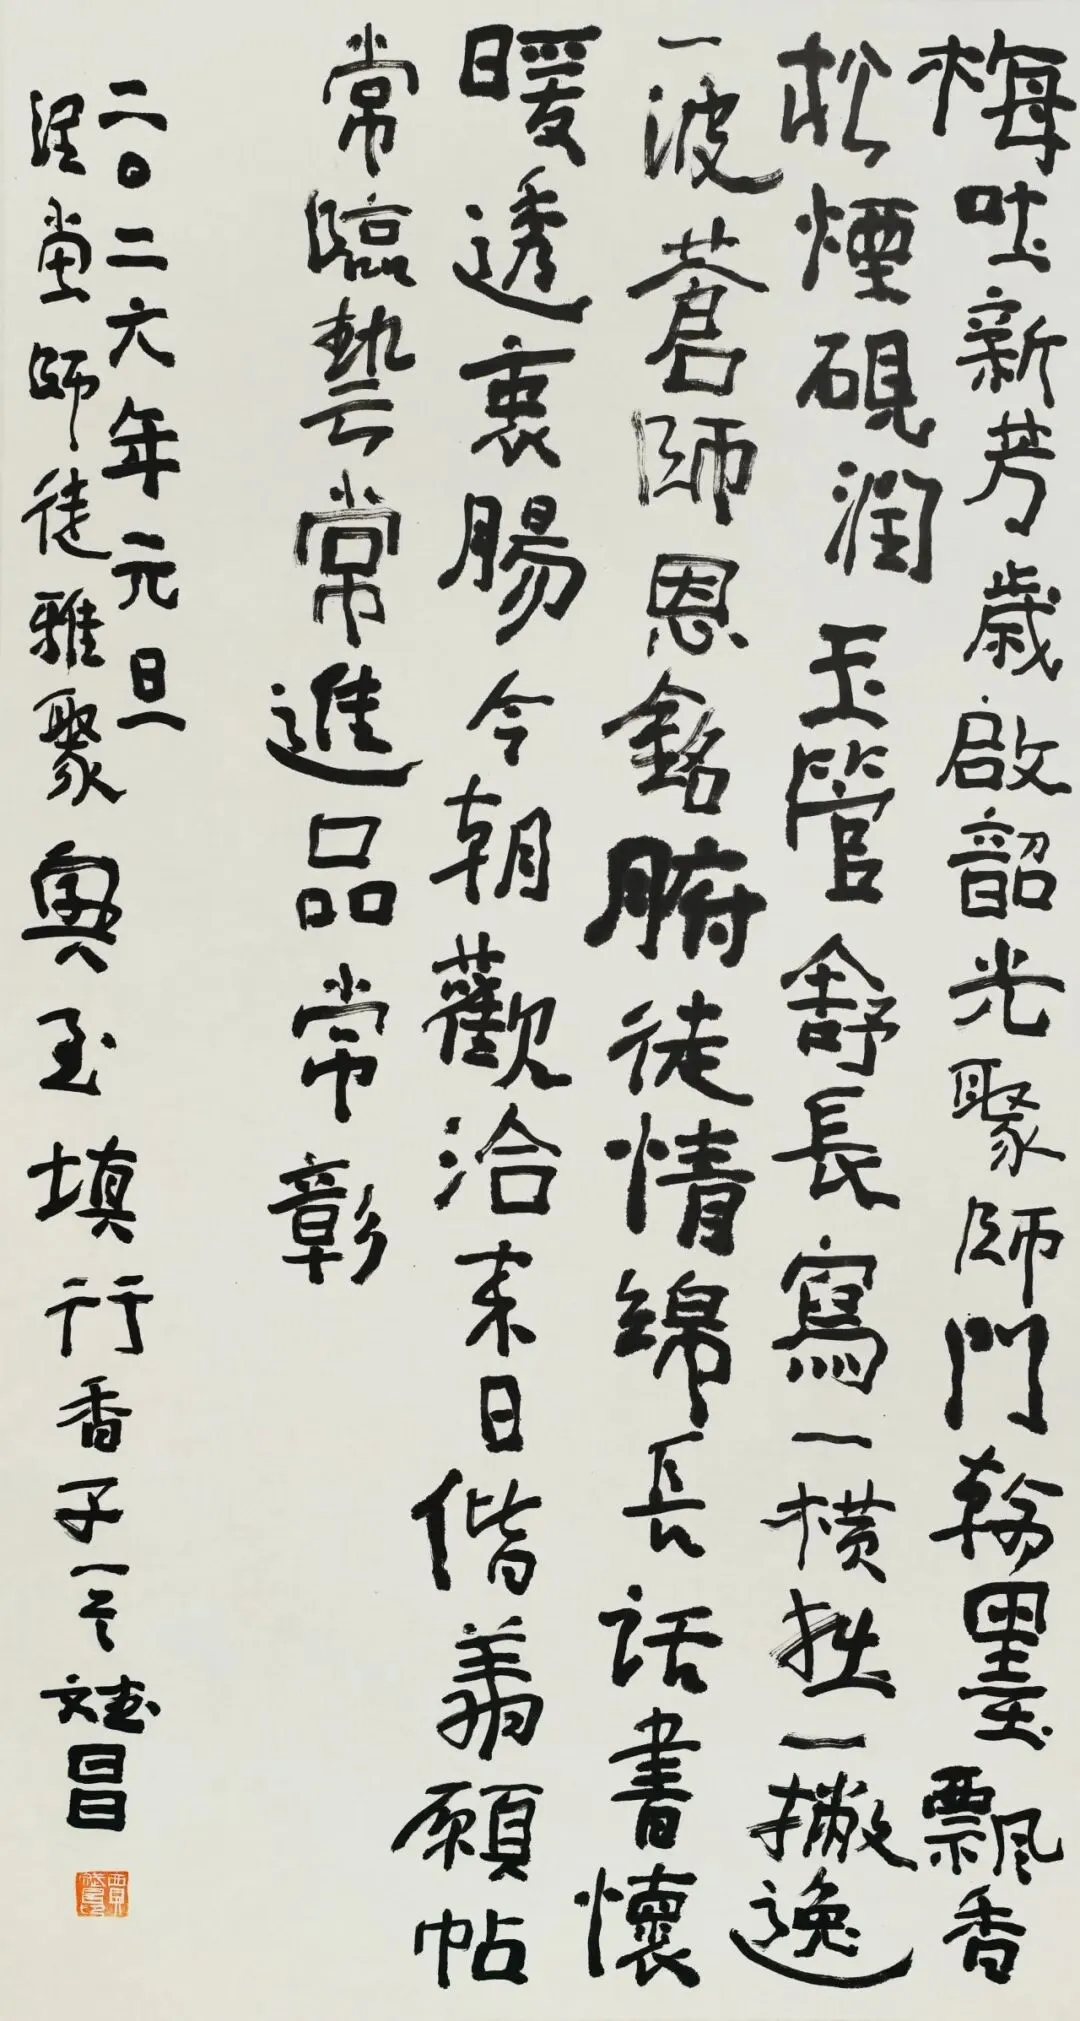 梅吐新芳歲啟韶光聚師門翰墨飄香
松煙硯潤玉管舒長寫一橫拙一撇逸
一波蒼師恩銘腑徒情綿長話書懷
暖透衷腸今朝歡洽來日偕翔願帖
常臨藝常進品常彰
二〇二六年元旦
堂師徒雅聚興至填行香子一
昌